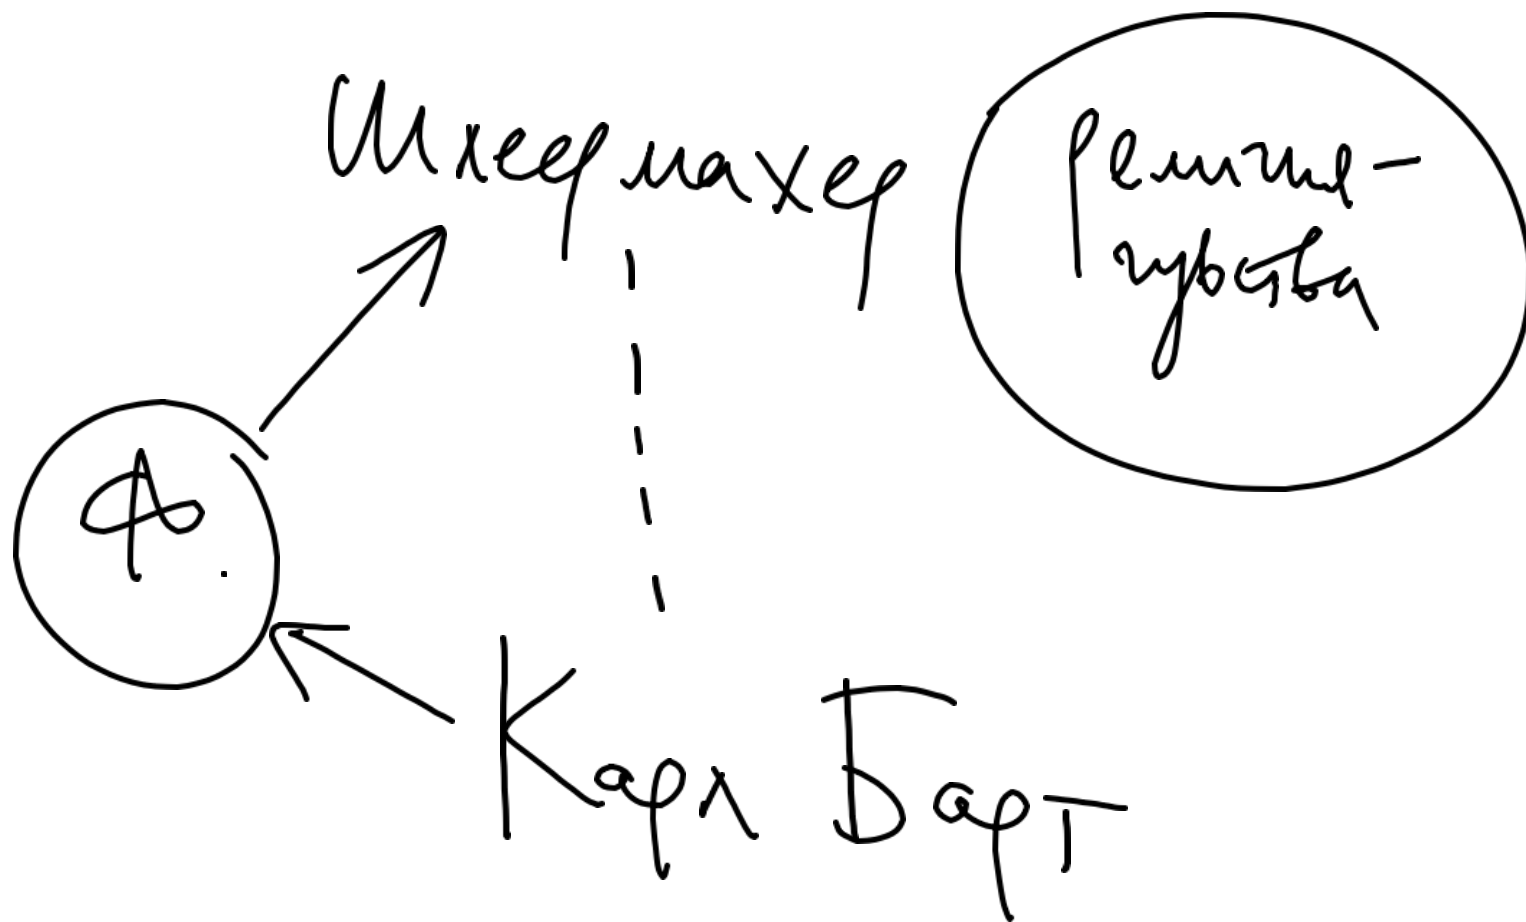 Шхеермахер
религия-
чувства
А
Карл Барт